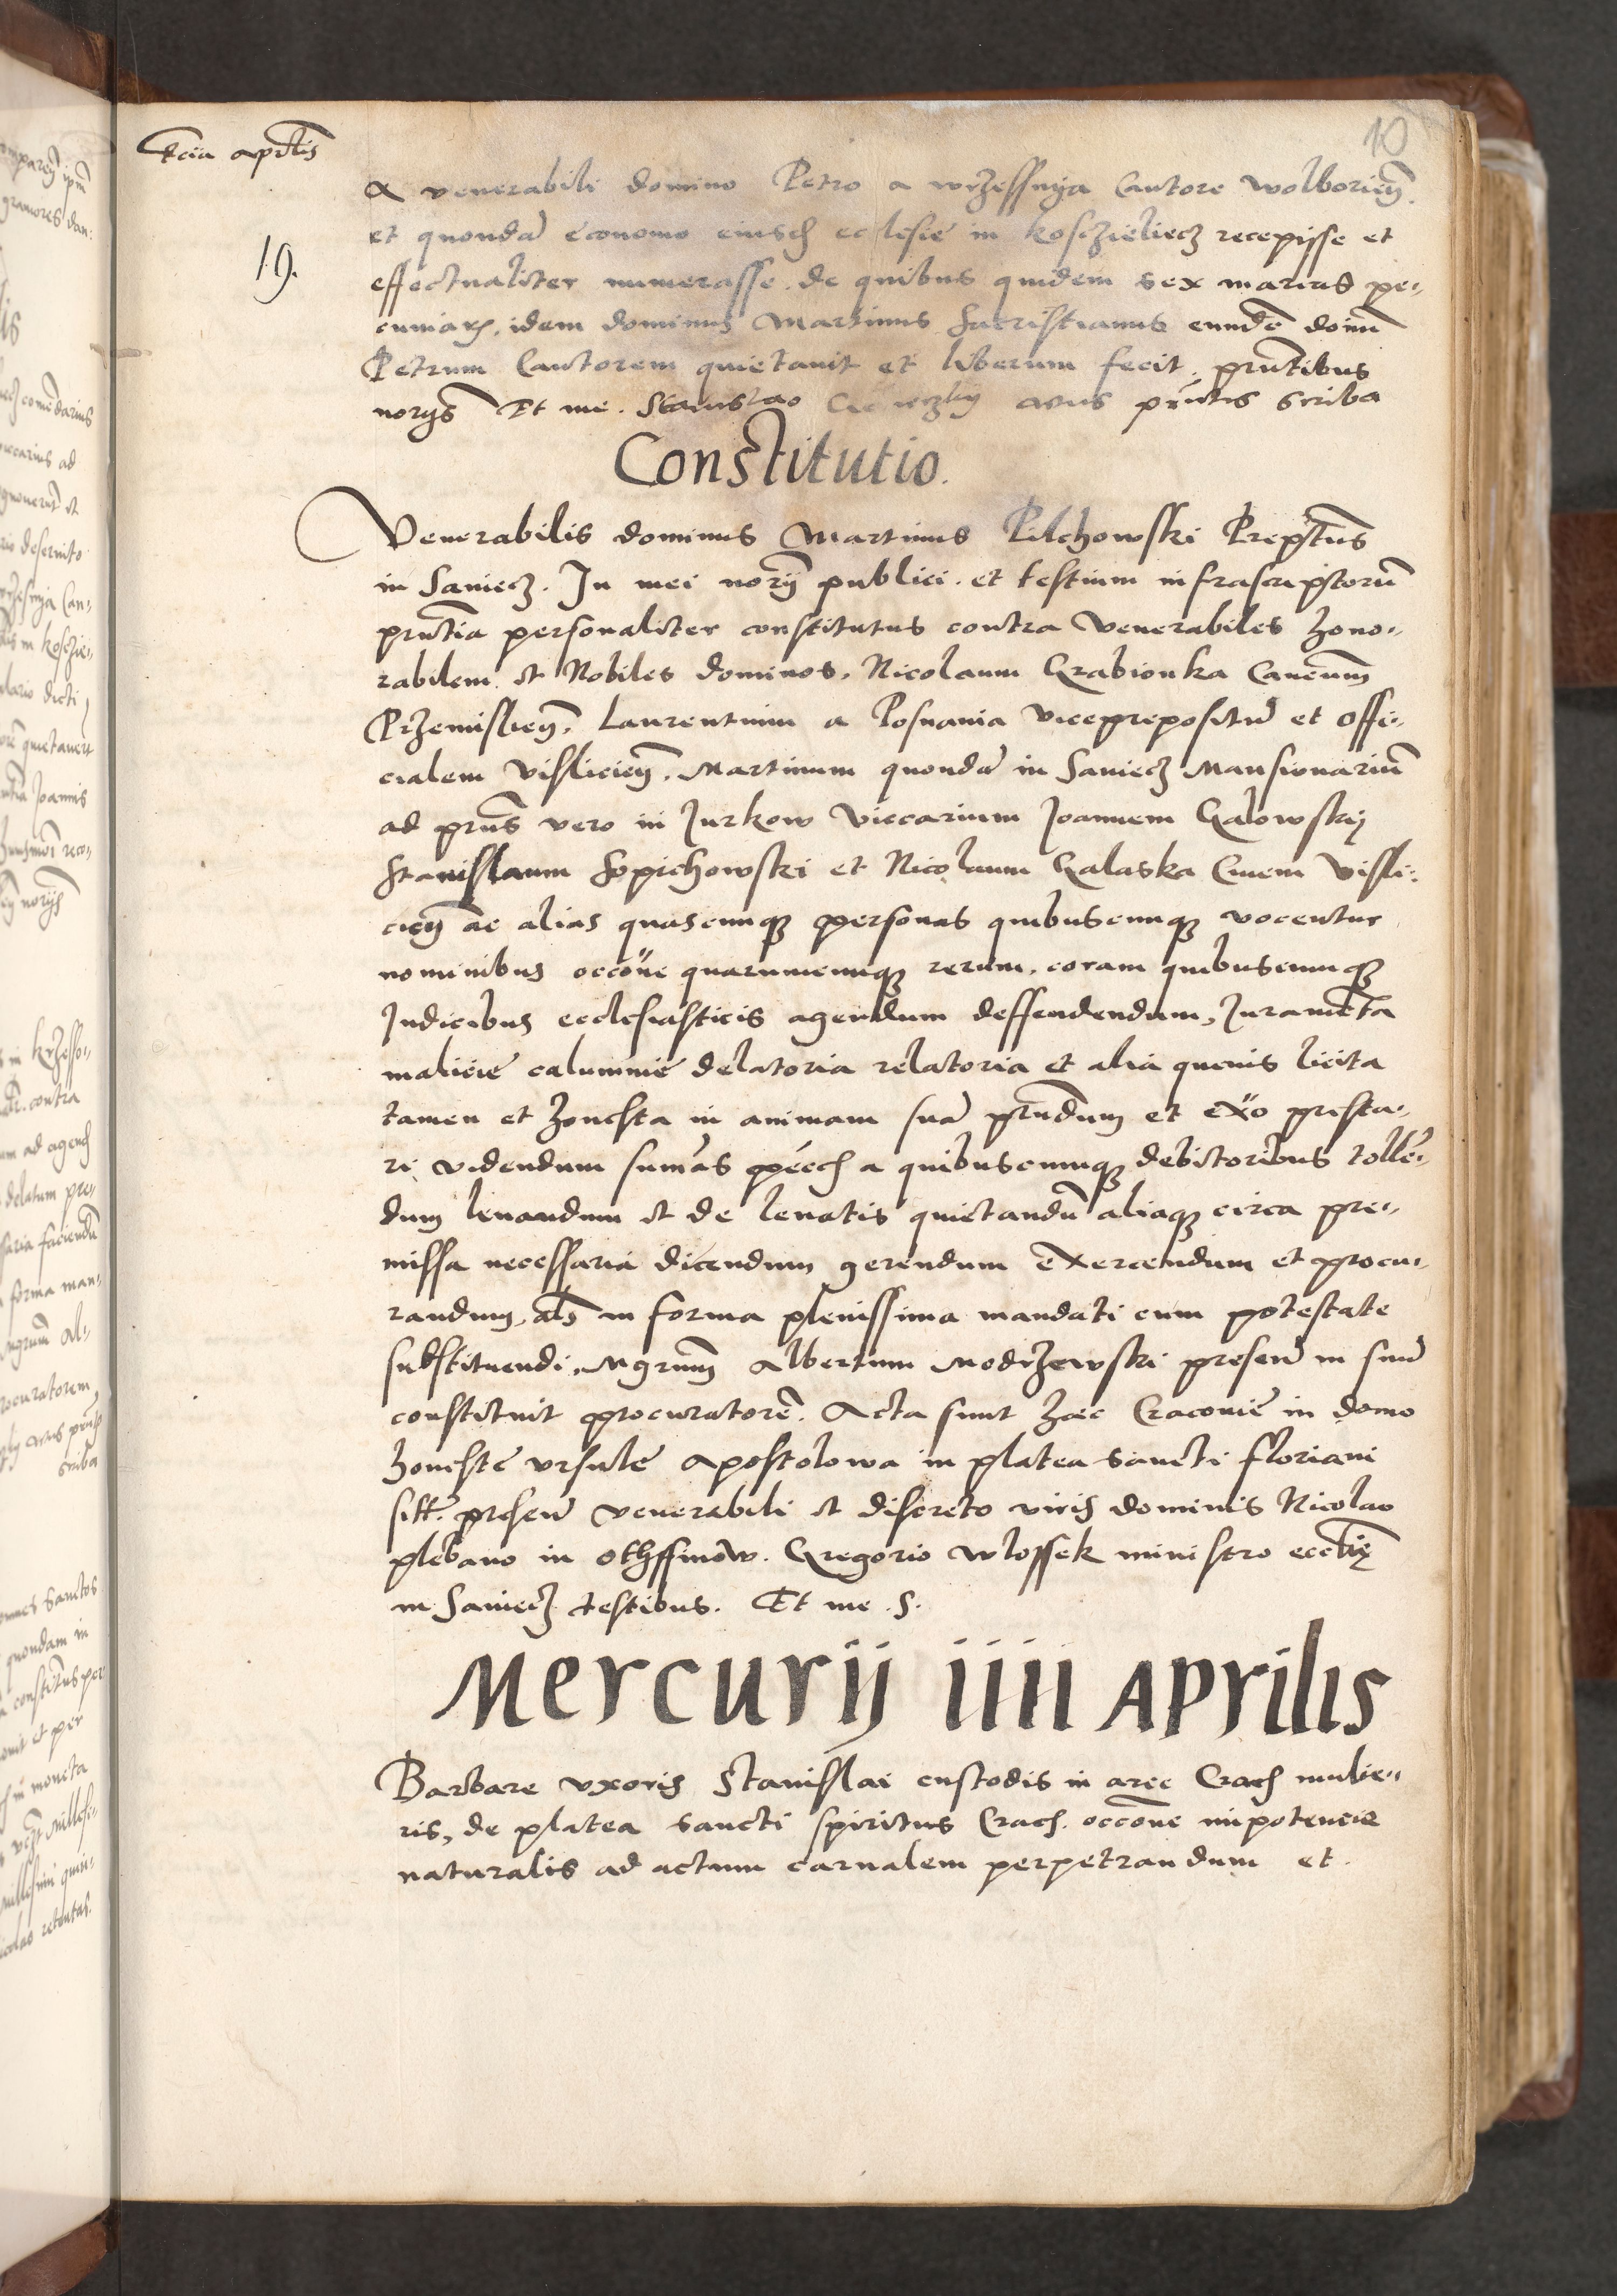 10
tercia aprilis
19.
a venerabili domino Petro a wrzessnya Cantore wolborieñ.
et quondã economo eiusdē ecclesie in koschzieliecz recepisse et
effectualiter numerasse. de quibus quidem sex marcas pe-
cuniarꝝ. idem dominus Martinus sacristianus eundẽ domĩ
Petrum Cantorem quietavit et liberum fecit. prñtibus
norijs Et me. Stanislao actus prñtis scriba
Constitutio.
Venerabilis dominus Martinus Pilchowski Prepsĩtus
in Saniecz. In mei norij publici. et testium infrascriptorũ
prñtia personaliter constitutus contra Venerabiles hono-
rabilem et Nobiles dominos. Nicolaum Grabionka Canẽum
Przemislieñ. Laurentium a Posnania vicepropositũ et offi-
cialem visslicieñ. Martinum quondã in Saniecz Mansionariũ
ad prñs vero in Jurkow viccarium Joannem Galowskij
Stanisslaum Sopichowski et Nicolaum Galaska Civem vissli-
cieñ ac alias quascunqȝ personas quibuscunqȝ vocentur
nominibus occõne quarumcunqȝ rerum. coram quibuscunqȝ
Judicibus ecclesiasticis agendum deffendendum, Juramẽta
malicie calumnie delatoria relatoria et alia quevis licita
tamen et honesta in animam suã prñdum et ex̃o presta-
ri videndum sumãs pẽcch a quibuscunqȝ debitoribus tollẽ-
dum levandum et de levatis quietandũ aliaqȝ circa pre-
missa necessaria dicendum gerendum exercendum et procu-
randum, alš in forma plenissima mandati cum potestate
substituendi. Mgrum̃ Albertum Modrzewski presenẽ in suũ
constituit procuratorẽ. Acta sunt hec Cracovie in domo
honeste ursule Apostolowa in platea sancti floriani
sitt. presenẽ venerabili et discreto viris dominis Nicolao
plebano in othffinow. Gregorio wlossek ministro eccłię
in Saniecz testibus. Et me. S.
Mercurij iiii Aprilis
Barbare uxoris Stanislai custodis in arce Crach mulie-
ris, de platea sancti spiritus Crach. occõne impotencie
naturalis ad actum carnalem perpetrandum et.